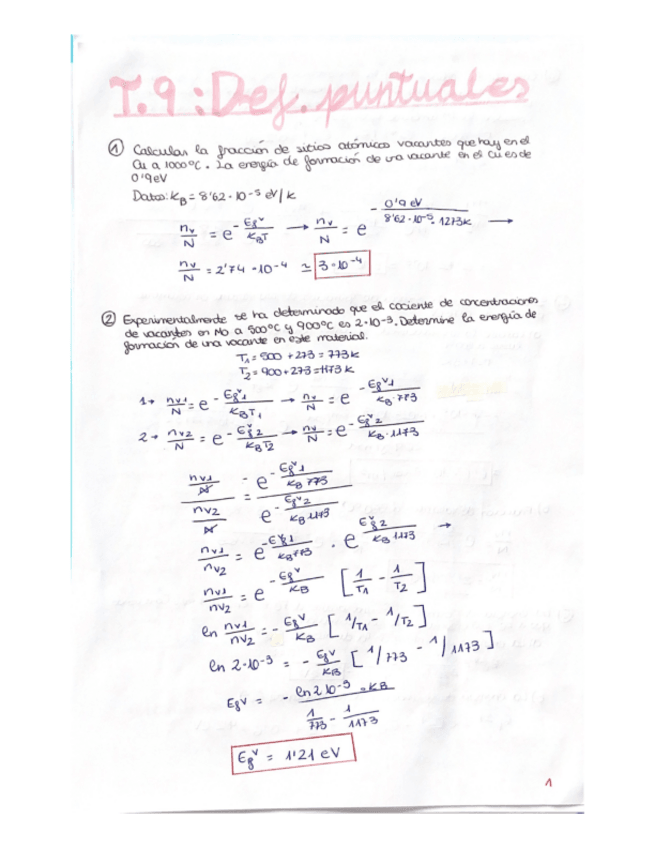 T.9: Def. puntuales
① Calcular la fracción de sitios atómicos vacantes que hay en el
Cu a 1000ºC. La energía de formación de una vacante en el Cu es de
0'9eV
Datos: K_B = 8'62·10⁻⁵ eV/K
n_v/N = e^(-E_f^v/K_BT) → n_v/N = e^(-0'9 eV/8'62·10⁻⁵·1273K) →
n_v/N = 2'74·10⁻⁴ ≃ 3·10⁻⁴
② Experimentalmente se ha determinado que el cociente de concentraciones
de vacantes en Mo a 500ºC y 900ºC es 2·10⁻³. Determine la energía de
formación de una vacante en este material.
T₁ = 500 + 273 = 773K
T₂ = 900 + 273 = 1173K
1→ n_v1/N = e^(-E_f^v1/K_BT₁) → n_v/N = e^(-E_f^v1/K_B·773)
2→ n_v2/N = e^(-E_f^v2/K_BT₂) → n_v/N = e^(-E_f^v2/K_B·1173)
(n_v1/N)/(n_v2/N) = e^(-E_f^v1/K_B 773)/e^(-E_f^v2/K_B 1173)
n_v1/n_v2 = e^(-E_f^v1/K_B773) · e^(E_f^v2/K_B 1173) →
n_v1/n_v2 = e^(-E_f^v/K_B [1/T₁ - 1/T₂])
ln n_v1/n_v2 = -E_f^v/K_B [1/T₁ - 1/T₂]
ln 2·10⁻³ = -E_f^v/K_B [1/773 - 1/1173]
E_f^v = - ln 2·10⁻³·K_B/(1/773 - 1/1173)
E_f^v = 1'21 eV
1